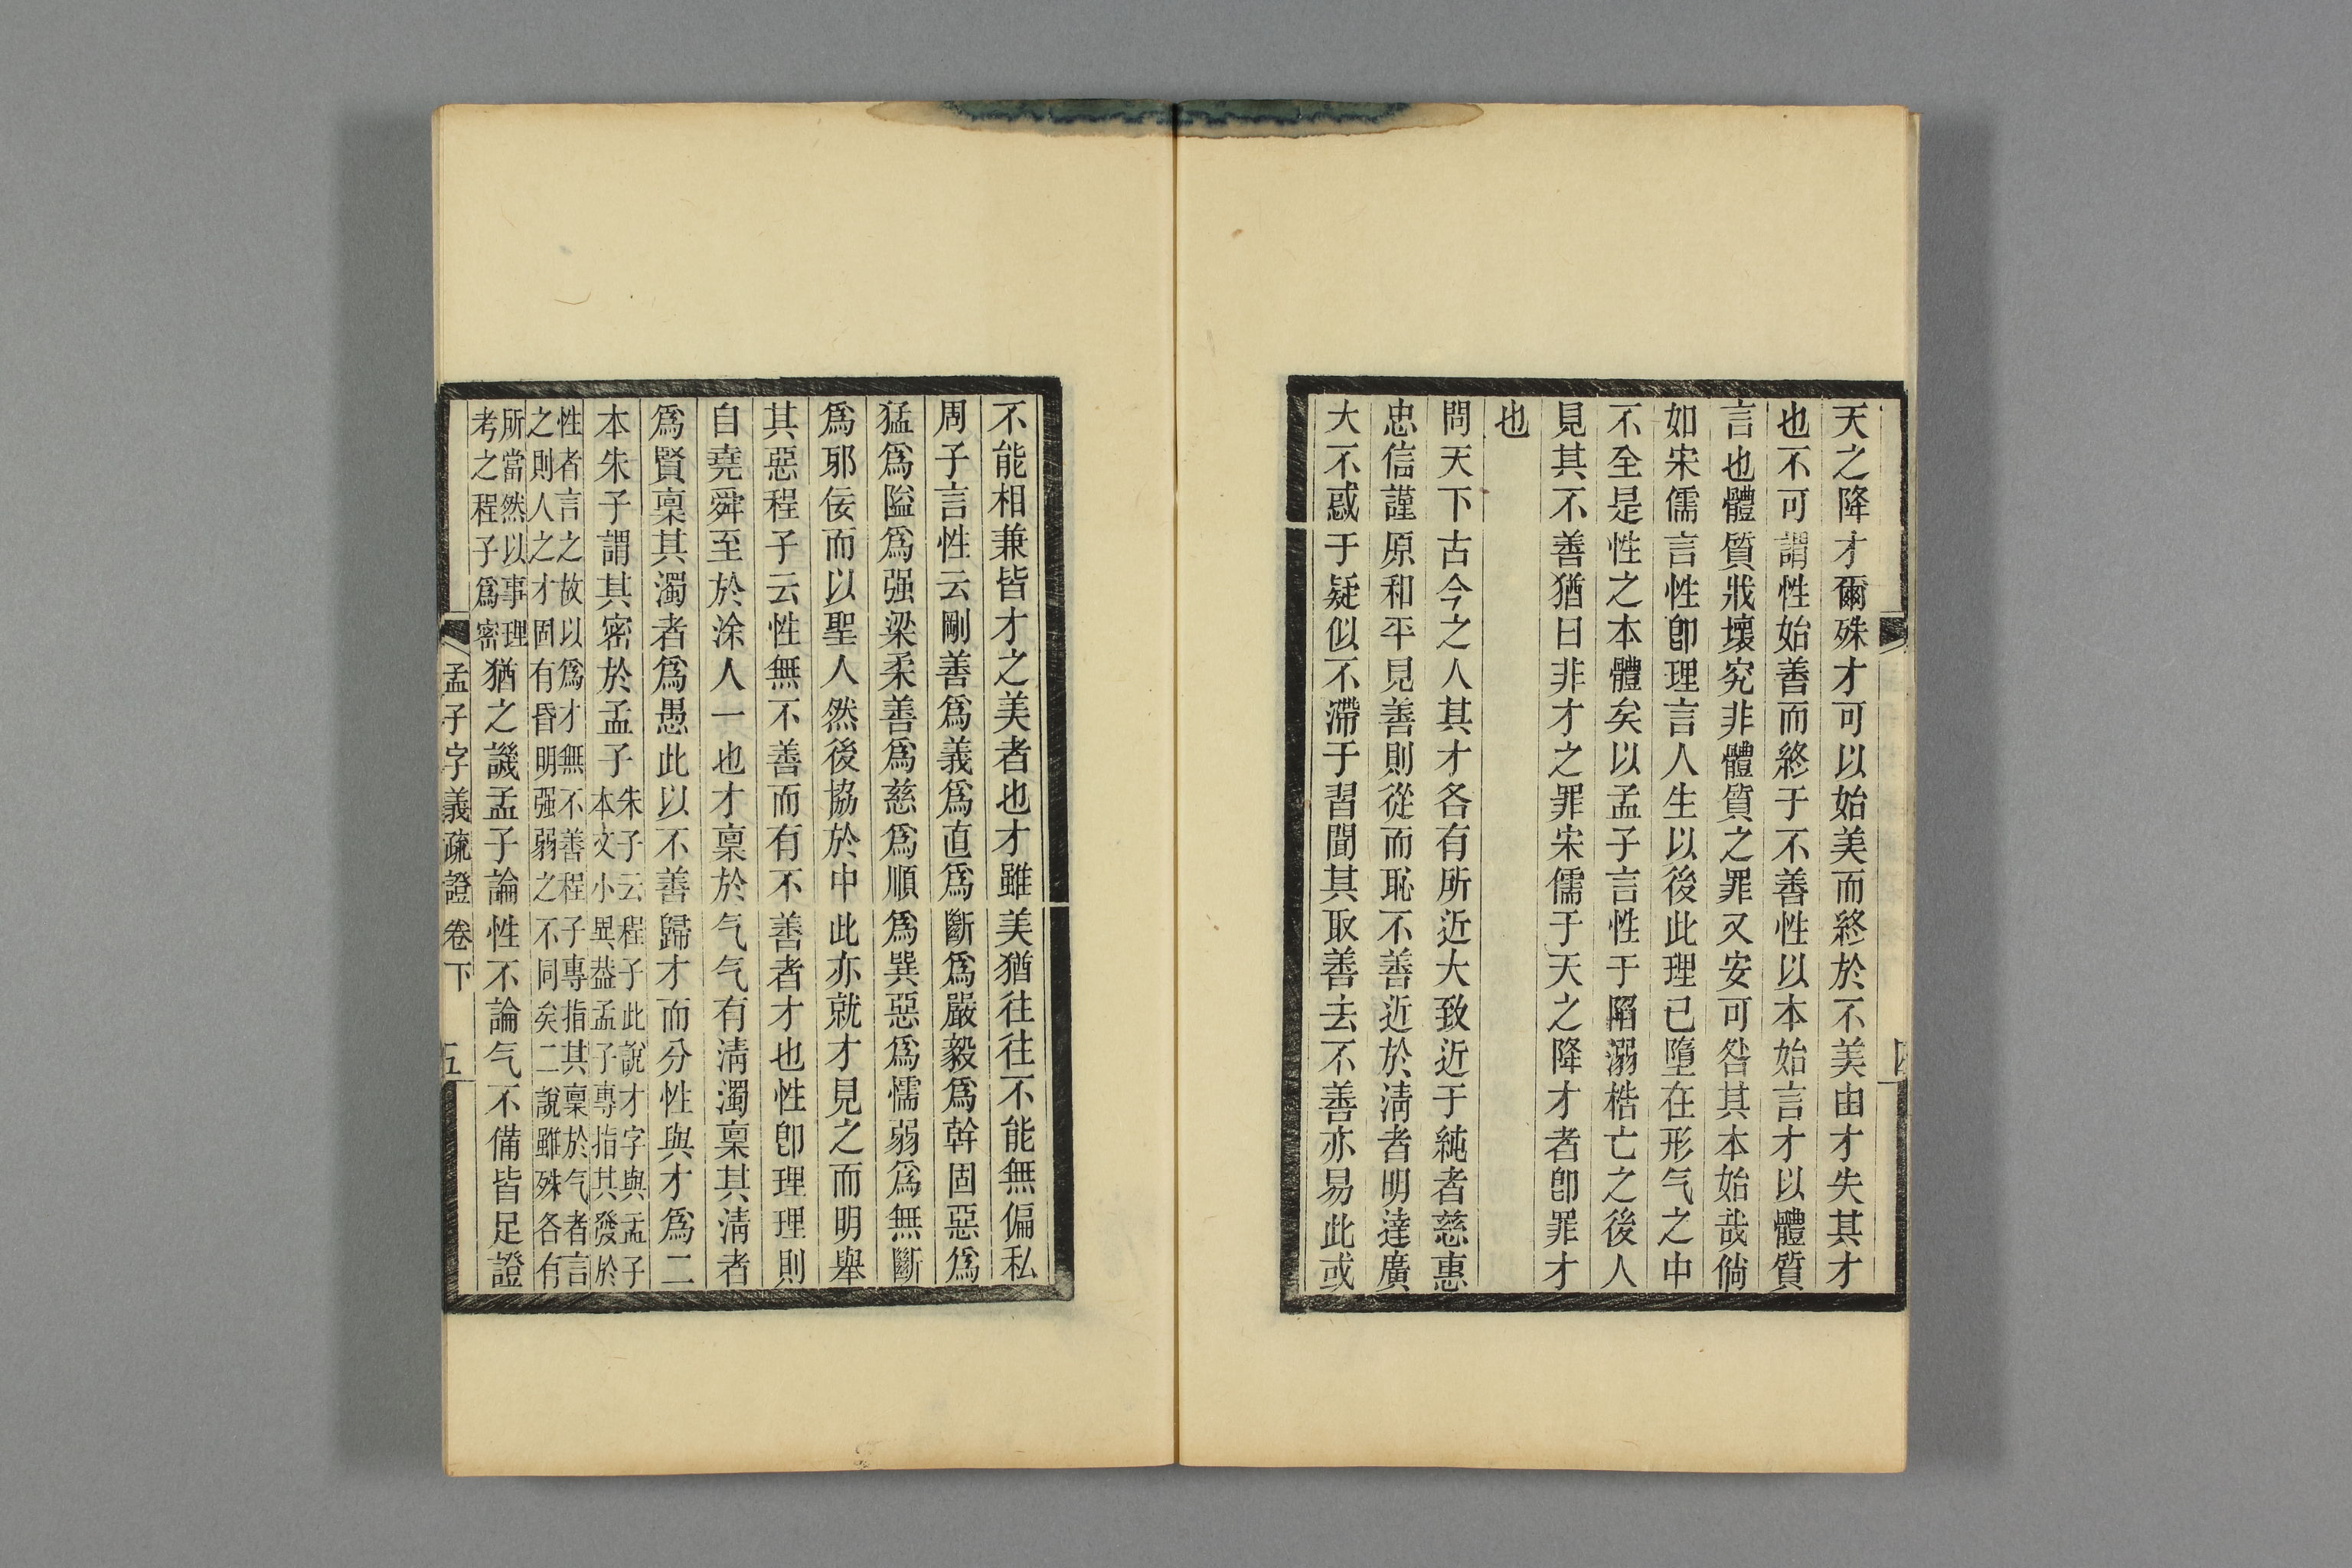 天之降才爾殊才可以始美而終於不美由才失其才
也不可謂性始善而終于不善性以本始言才以體質
言也體質戕壞究非體質之罪又安可咎其本始哉倘
如宋儒言性卽理言人生以後此理已墮在形气之中
不全是性之本體矣以孟子言性于陷溺梏亡之後人
見其不善猶曰非才之罪宋儒于天之降才者卽罪才
也
問天下古今之人其才各有所近大致近于純者慈惠
忠信謹原和平見善則從而恥不善近於淸者明達廣
大不惑于疑似不滯于習聞其取善去不善亦易此或
不能相兼皆才之美者也才雖美猶往往不能無偏私
周子言性云剛善爲義爲直爲斷爲嚴毅爲幹固惡爲
猛爲隘爲强梁柔善爲慈爲順爲巽惡爲懦弱爲無斷
爲邪佞而以聖人然後協於中此亦就才見之而明舉
其惡程子云性無不善而有不善者才也性卽理理則
自堯舜至於涂人一也才稟於气气有淸濁稟其淸者
爲賢稟其濁者爲愚此以不善歸才而分性與才爲二
本朱子謂其密於孟子
朱子云程子此說才字與孟子
本文小異葢孟子專指其發於
性者言之故以爲才無不善程子專指其稟於气者言
之則人之才固有昏明强弱之不同矣二說雖殊各有
所當然以事理
考之程子爲密
猶之譏孟子論性不論气不備皆足證
孟子字義疏證卷下
五